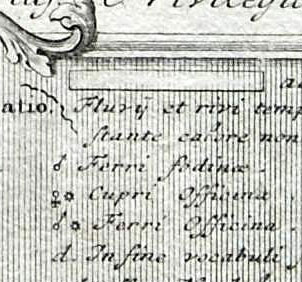 atio.
Fluvij et rivi temp
stante cadere non
♂ Ferri fodinæ.
♀☼ Cupri Officina
♂☼ Ferri Officina.
d. In fine vocabuli